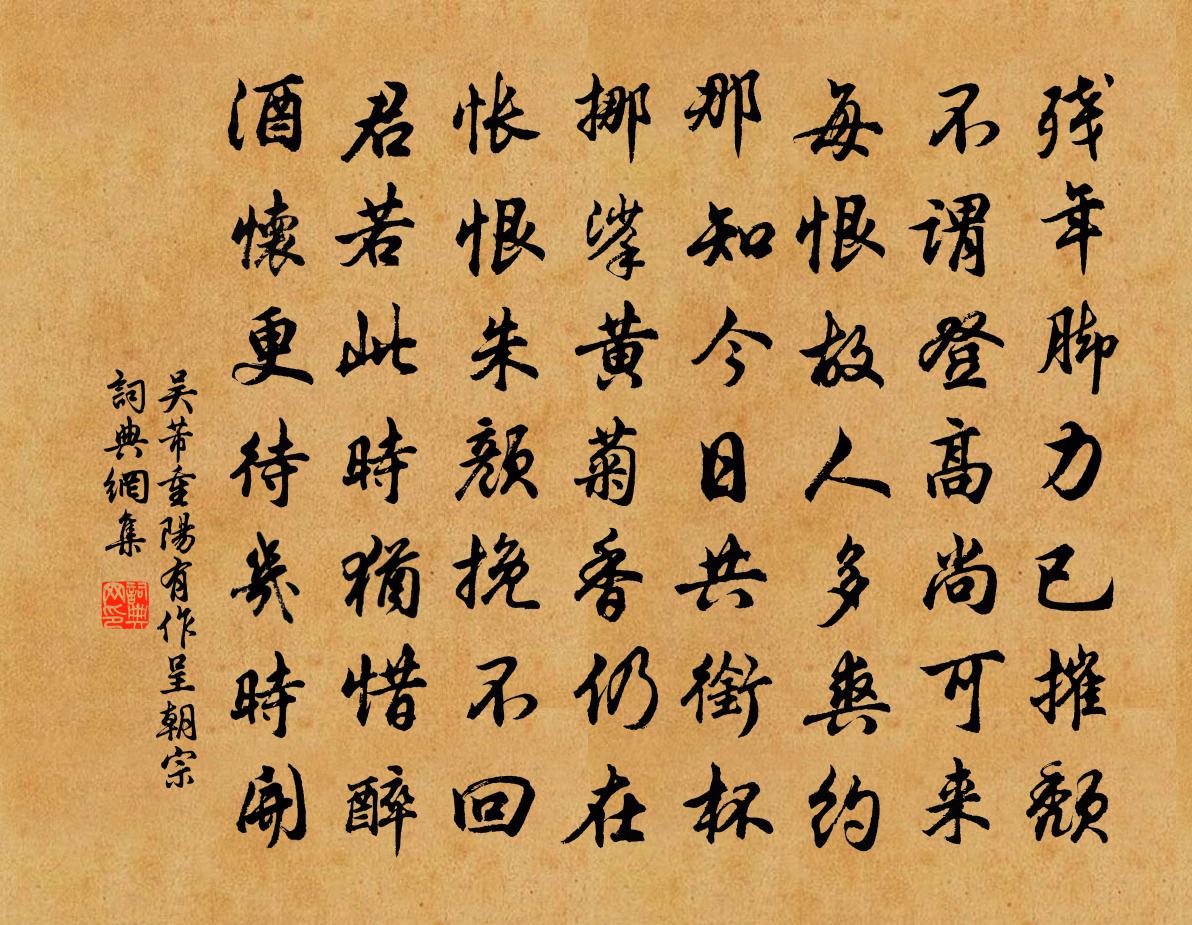 残年脚力已摧颓
不谓登高尚可来
每恨故人多爽约
那知今日共衔杯
挪挲黄菊香仍在
怅恨朱颜挽不回
君若此時猶惜醉
酒懷更待幾時開
吴芾重陽有作呈朝宗
詞典網集
詞典网印